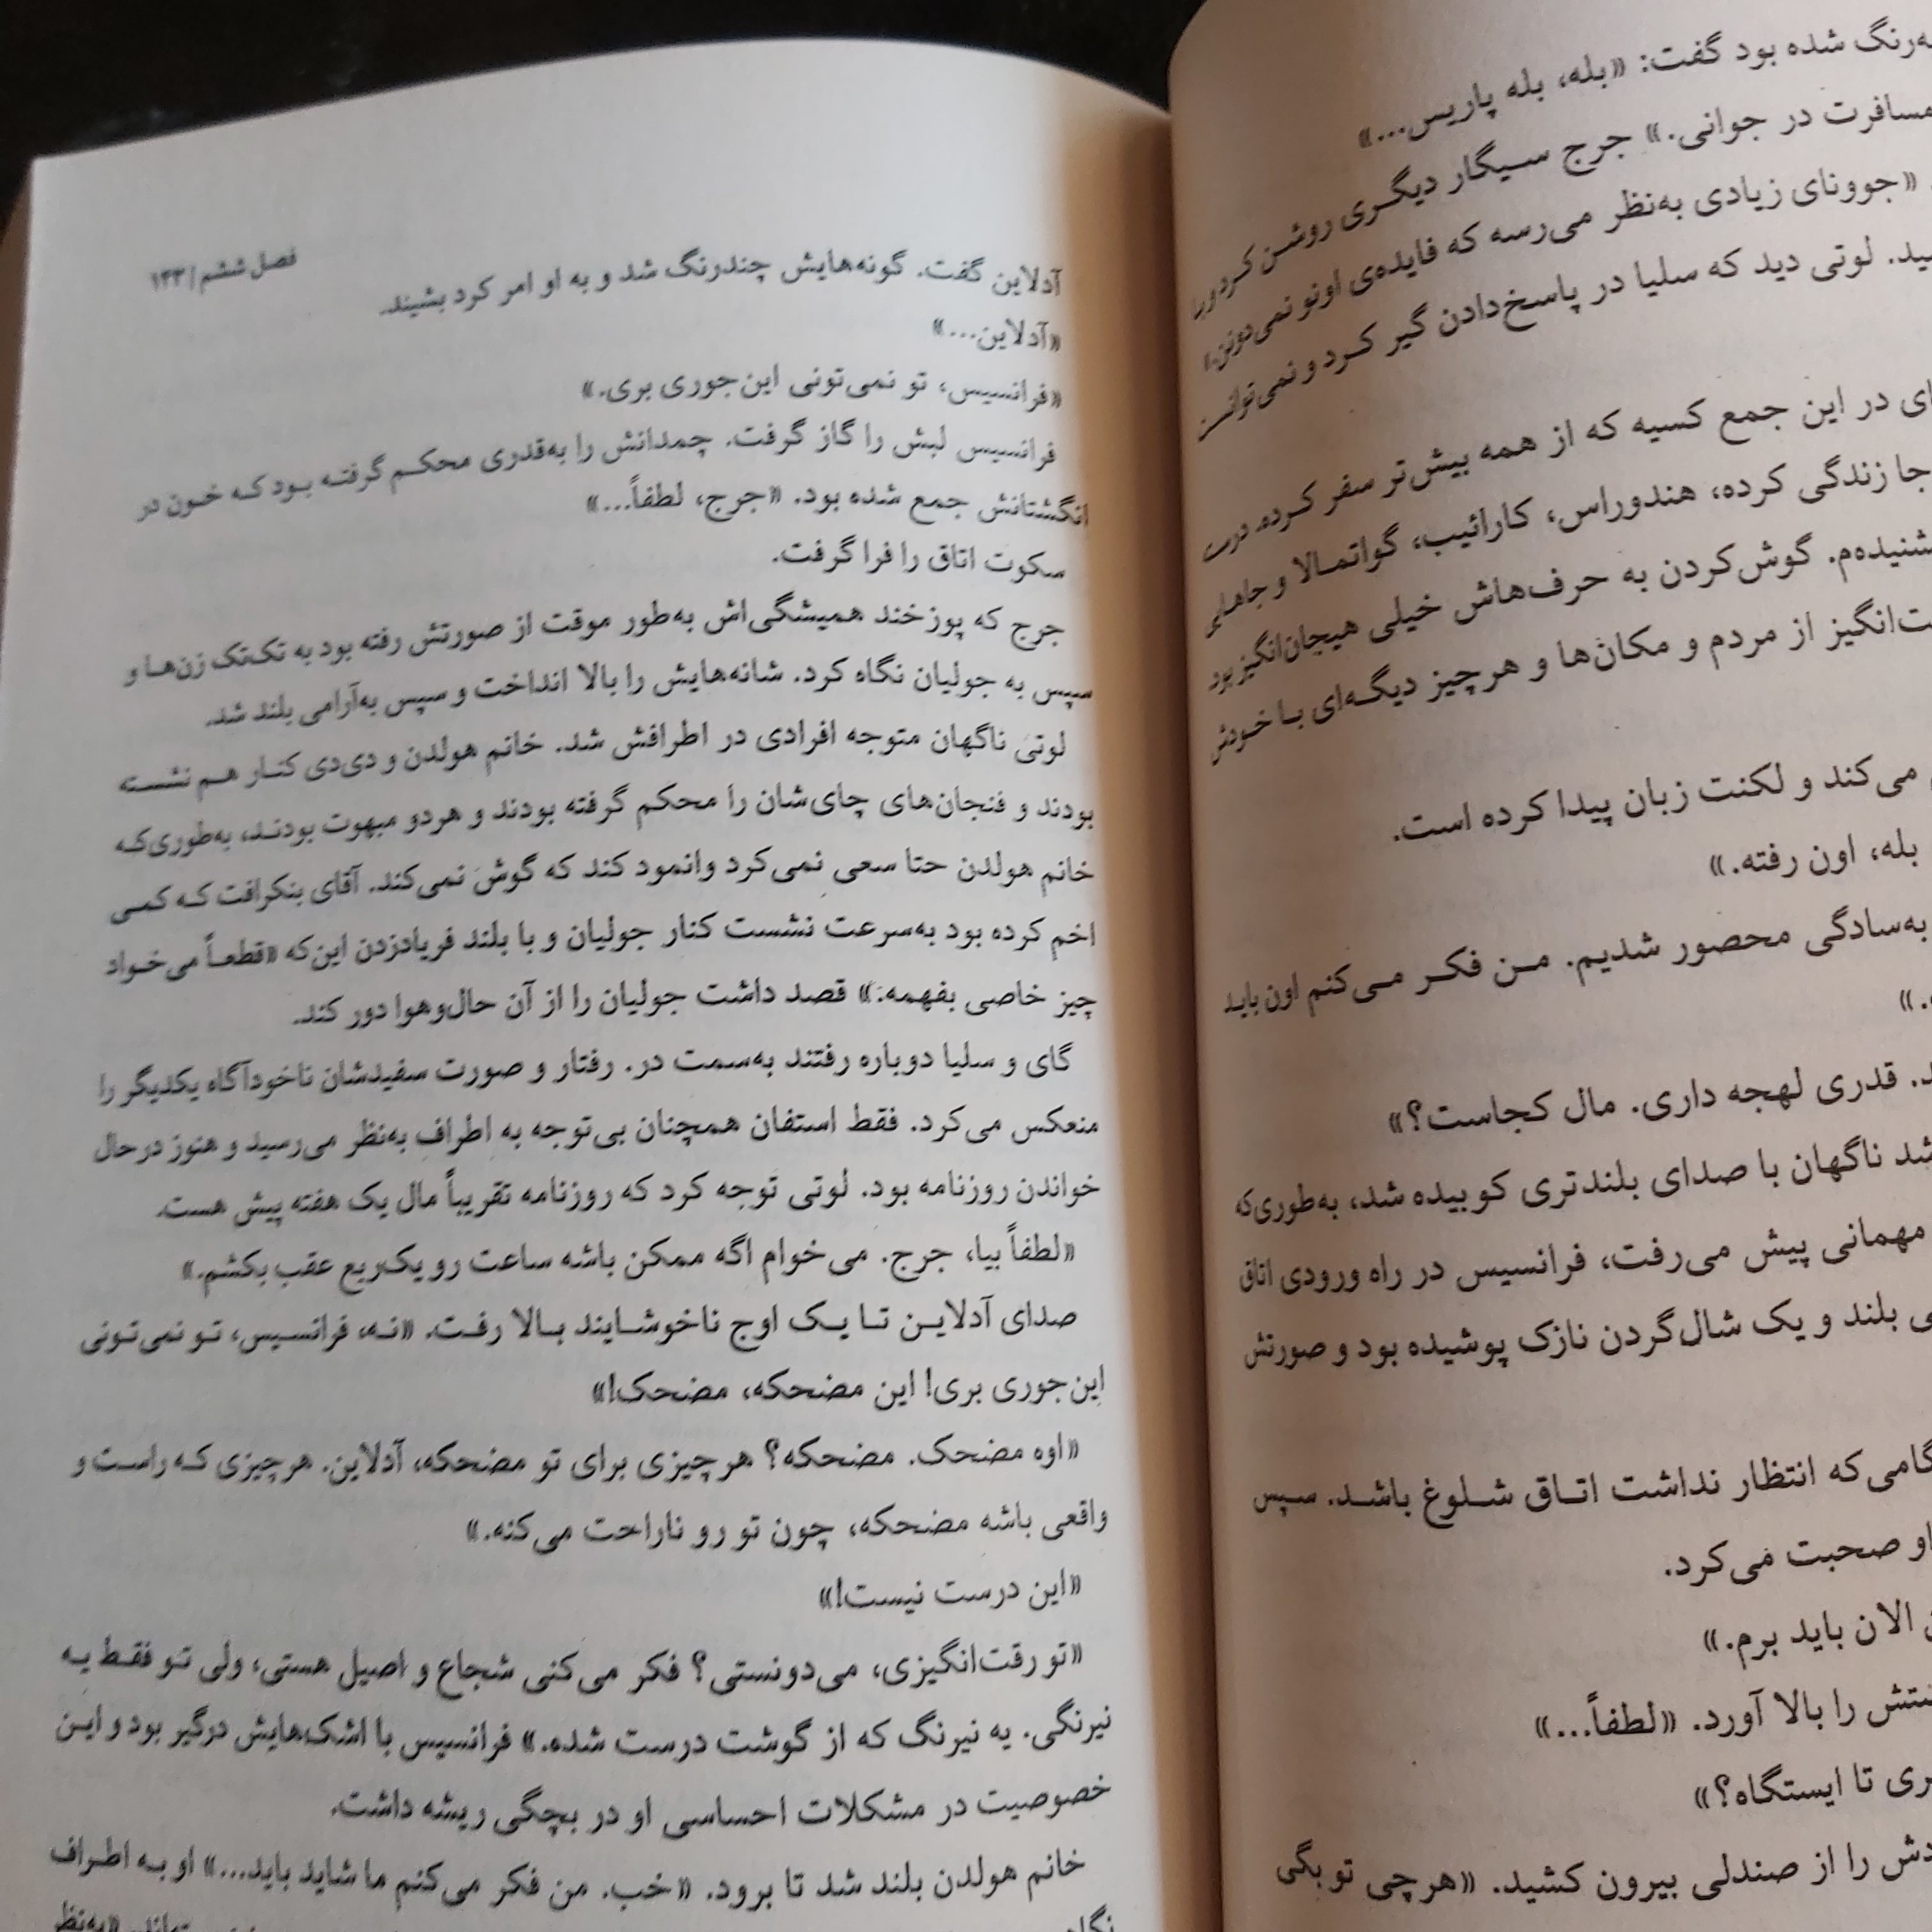 ه‌رنگ شده بود گفت: «بله، بله پاریس...»
مسافرت در جوانی.» جرج سیگار دیگری روشن کرد و با
«جوونای زیادی به‌نظر می‌رسه که فایده‌ی اونو نمی‌دونن.»
ید. لوتی دید که سلیا در پاسخ‌دادن گیر کرد و نمی‌توانست
ای در این جمع کسیه که از همه بیش‌تر سفر کرده. درسته
جا زندگی کرده، هندوراس، کارائیب، گواتمالا و جاهای
شنیده‌م. گوش‌کردن به حرف‌هاش خیلی هیجان‌انگیز بود
ت‌انگیز از مردم و مکان‌ها و هرچیز دیگه‌ای با خودش
می‌کند و لکنت زبان پیدا کرده است.
بله، اون رفته.»
به‌سادگی محصور شدیم. من فکر می‌کنم اون باید
.»
د. قدری لهجه داری. مال کجاست؟»
شد ناگهان با صدای بلندتری کوبیده شد، به‌طوری‌که
مهمانی پیش می‌رفت، فرانسیس در راه ورودی اتاق
ی بلند و یک شال‌گردن نازک پوشیده بود و صورتش
گامی‌که انتظار نداشت اتاق شلوغ باشد. سپس
او صحبت می‌کرد.
الان باید برم.»
تش را بالا آورد. «لطفاً...»
ری تا ایستگاه؟»
دش را از صندلی بیرون کشید. «هرچی تو بگی
فصل ششم | ۱۴۳
آدلاین گفت. گونه‌هایش چندرنگ شد و به او امر کرد بشیند.
«آدلاین...»
«فرانسیس، تو نمی‌تونی این‌جوری بری.»
فرانسیس لبش را گاز گرفت. چمدانش را به‌قدری محکم گرفته بود که خون در
انگشتانش جمع شده بود. «جرج، لطفاً...»
سکوت اتاق را فرا گرفت.
جرج که پوزخند همیشگی‌اش به‌طور موقت از صورتش رفته بود به تک‌تک زن‌ها و
سپس به جولیان نگاه کرد. شانه‌هایش را بالا انداخت و سپس به‌آرامی بلند شد.
لوتی ناگهان متوجه افرادی در اطرافش شد. خانم هولدن و دی‌دی کنار هم نشسته
بودند و فنجان‌های چای‌شان را محکم گرفته بودند و هردو مبهوت بودند، به‌طوری‌که
خانم هولدن حتا سعی نمی‌کرد وانمود کند که گوش نمی‌کند. آقای بنکرافت که کمی
اخم کرده بود به‌سرعت نشست کنار جولیان و با بلند فریادزدن این‌که «قطعاً می‌خواد
چیز خاصی بفهمه:» قصد داشت جولیان را از آن حال‌وهوا دور کند.
گای و سلیا دوباره رفتند به‌سمت در. رفتار و صورت سفیدشان ناخودآگاه یکدیگر را
منعکس می‌کرد. فقط استفان همچنان بی‌توجه به اطراف به‌نظر می‌رسید و هنوز درحال
خواندن روزنامه بود. لوتی توجه کرد که روزنامه تقریباً مال یک هفته پیش هست.
«لطفاً بیا، جرج. می‌خوام اگه ممکن باشه ساعت رو یک‌ربع عقب بکشم.»
صدای آدلاین تا یک اوج ناخوشایند بالا رفت. «نه، فرانسیس، تو نمی‌تونی
این‌جوری بری! این مضحکه، مضحک!»
«اوه مضحک. مضحکه؟ هرچیزی برای تو مضحکه، آدلاین. هرچیزی که راست و
واقعی باشه مضحکه، چون تو رو ناراحت می‌کنه.»
«این درست نیست!»
«تو رقت‌انگیزی، می‌دونستی؟ فکر می‌کنی شجاع و اصیل هستی، ولی تو فقط یه
نیرنگی. یه نیرنگ که از گوشت درست شده.» فرانسیس با اشک‌هایش درگیر بود و این
خصوصیت در مشکلات احساسی او در بچگی ریشه داشت.
خانم هولدن بلند شد تا برود. «خب. من فکر می‌کنم ما شاید باید...» او به اطراف